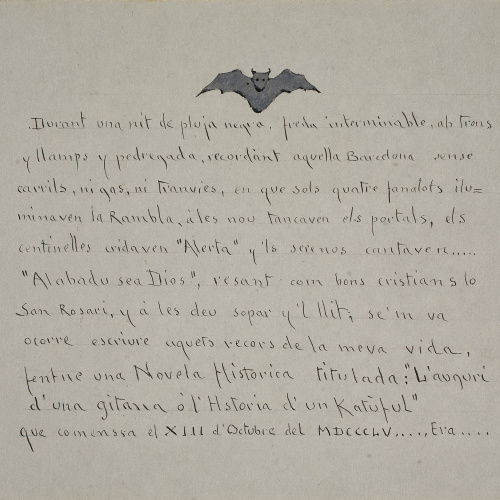 Durant una nit de pluja negra, freda interminable, ab trons
y llamps y pedregada, recordant aquella Barcelona sense
carrils, ni gas, ni tranvies, en que sols quatre fanalots ilu=
minaven la Rambla, á les nou tancaven els portals, els
centinelles cridaven "Alerta" y 'ls serenos cantaven.....
"Alabadu sea Dios", resant com bons cristians lo
San Rosari, y á les deu sopar y 'l llit; se'm va
ocorre escriure aquets recors de la meva vida,
fentne una Novela Historica titulada: "L'auguri
d'una gitana ó l'Hstoria d'un Katúful"
que comensa el XIII d'Octubre del MDCCCLV...., Era....